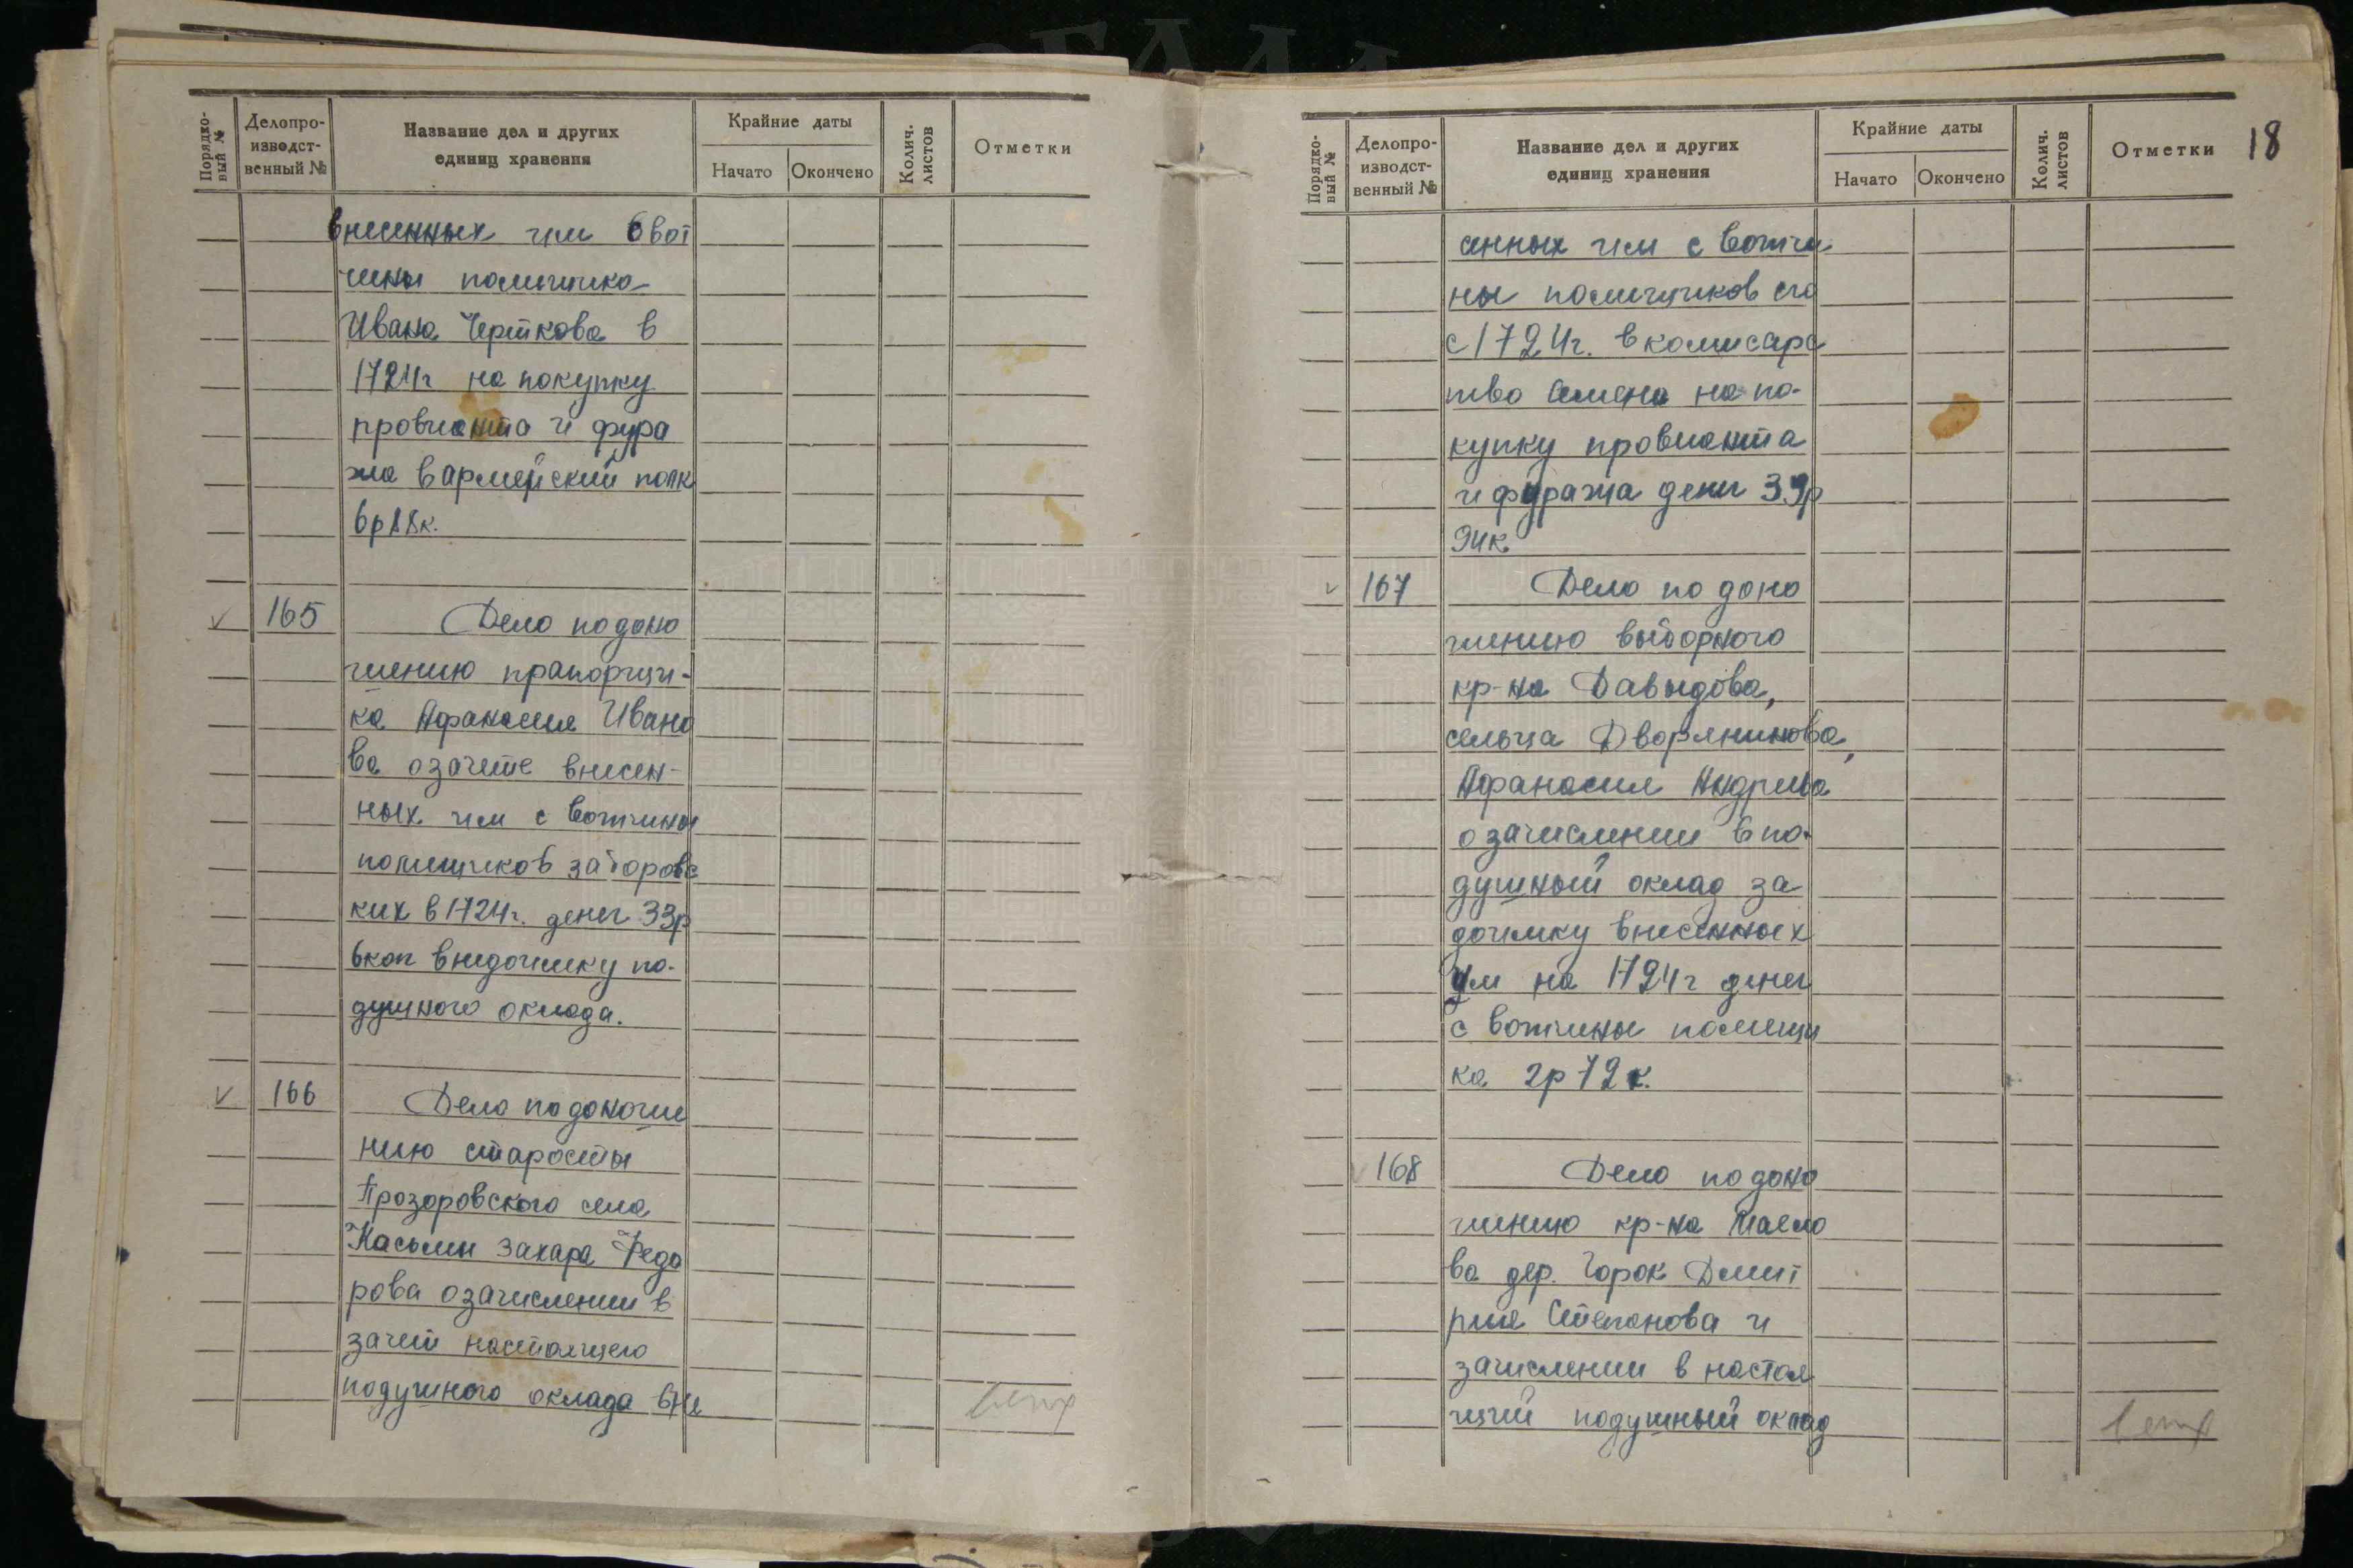 Порядко-
вый №
Делопро-
изводст-
венный №
Название дел и других
единиц хранения
Крайние даты
Начато
Окончено
Колич.
листов
Отметки
внесенных им с вот
чины помещика
Ивана Черткова в
1724г на покупку
провианта и фура
жа в армейский полк
6р 88к.
165
Дело по доно
шению прапорщи-
ка Афанасия Ивано
ва о зачете внесен-
ных им с вотчины
помещиков Заборовс
ких в 1724г. денег 33р
6коп в недоимку по-
душного оклада.
166
Дело по доноше
нию старосты
Прозоровского села
Касьмы Захара Федо
рова о зачислении в
зачет настоящего
подушного оклада вне
Порядко-
вый №
Делопро-
изводст-
венный №
Название дел и других
единиц хранения
Крайние даты
Начато
Окончено
Колич.
листов
Отметки
18
сенных им с вотчи
ны помещиков его
с 1724г. в комисарс
тво Семена на по-
купку провианта
и фуража денег 39р
94к
167
Дело по доно
шению выборного
кр-на Давыдова,
сельца Дворянинова,
Афанасия Андреева
о зачислении в по-
душный оклад за
доимку внесенных
им на 1724г денег
с вотчины помещи
ка 2р 72к.
168
Дело по доно
шению кр-на
ва дер. Горок Дмит
рия Степанова и
зачислении в настоя
щий подушный оклад